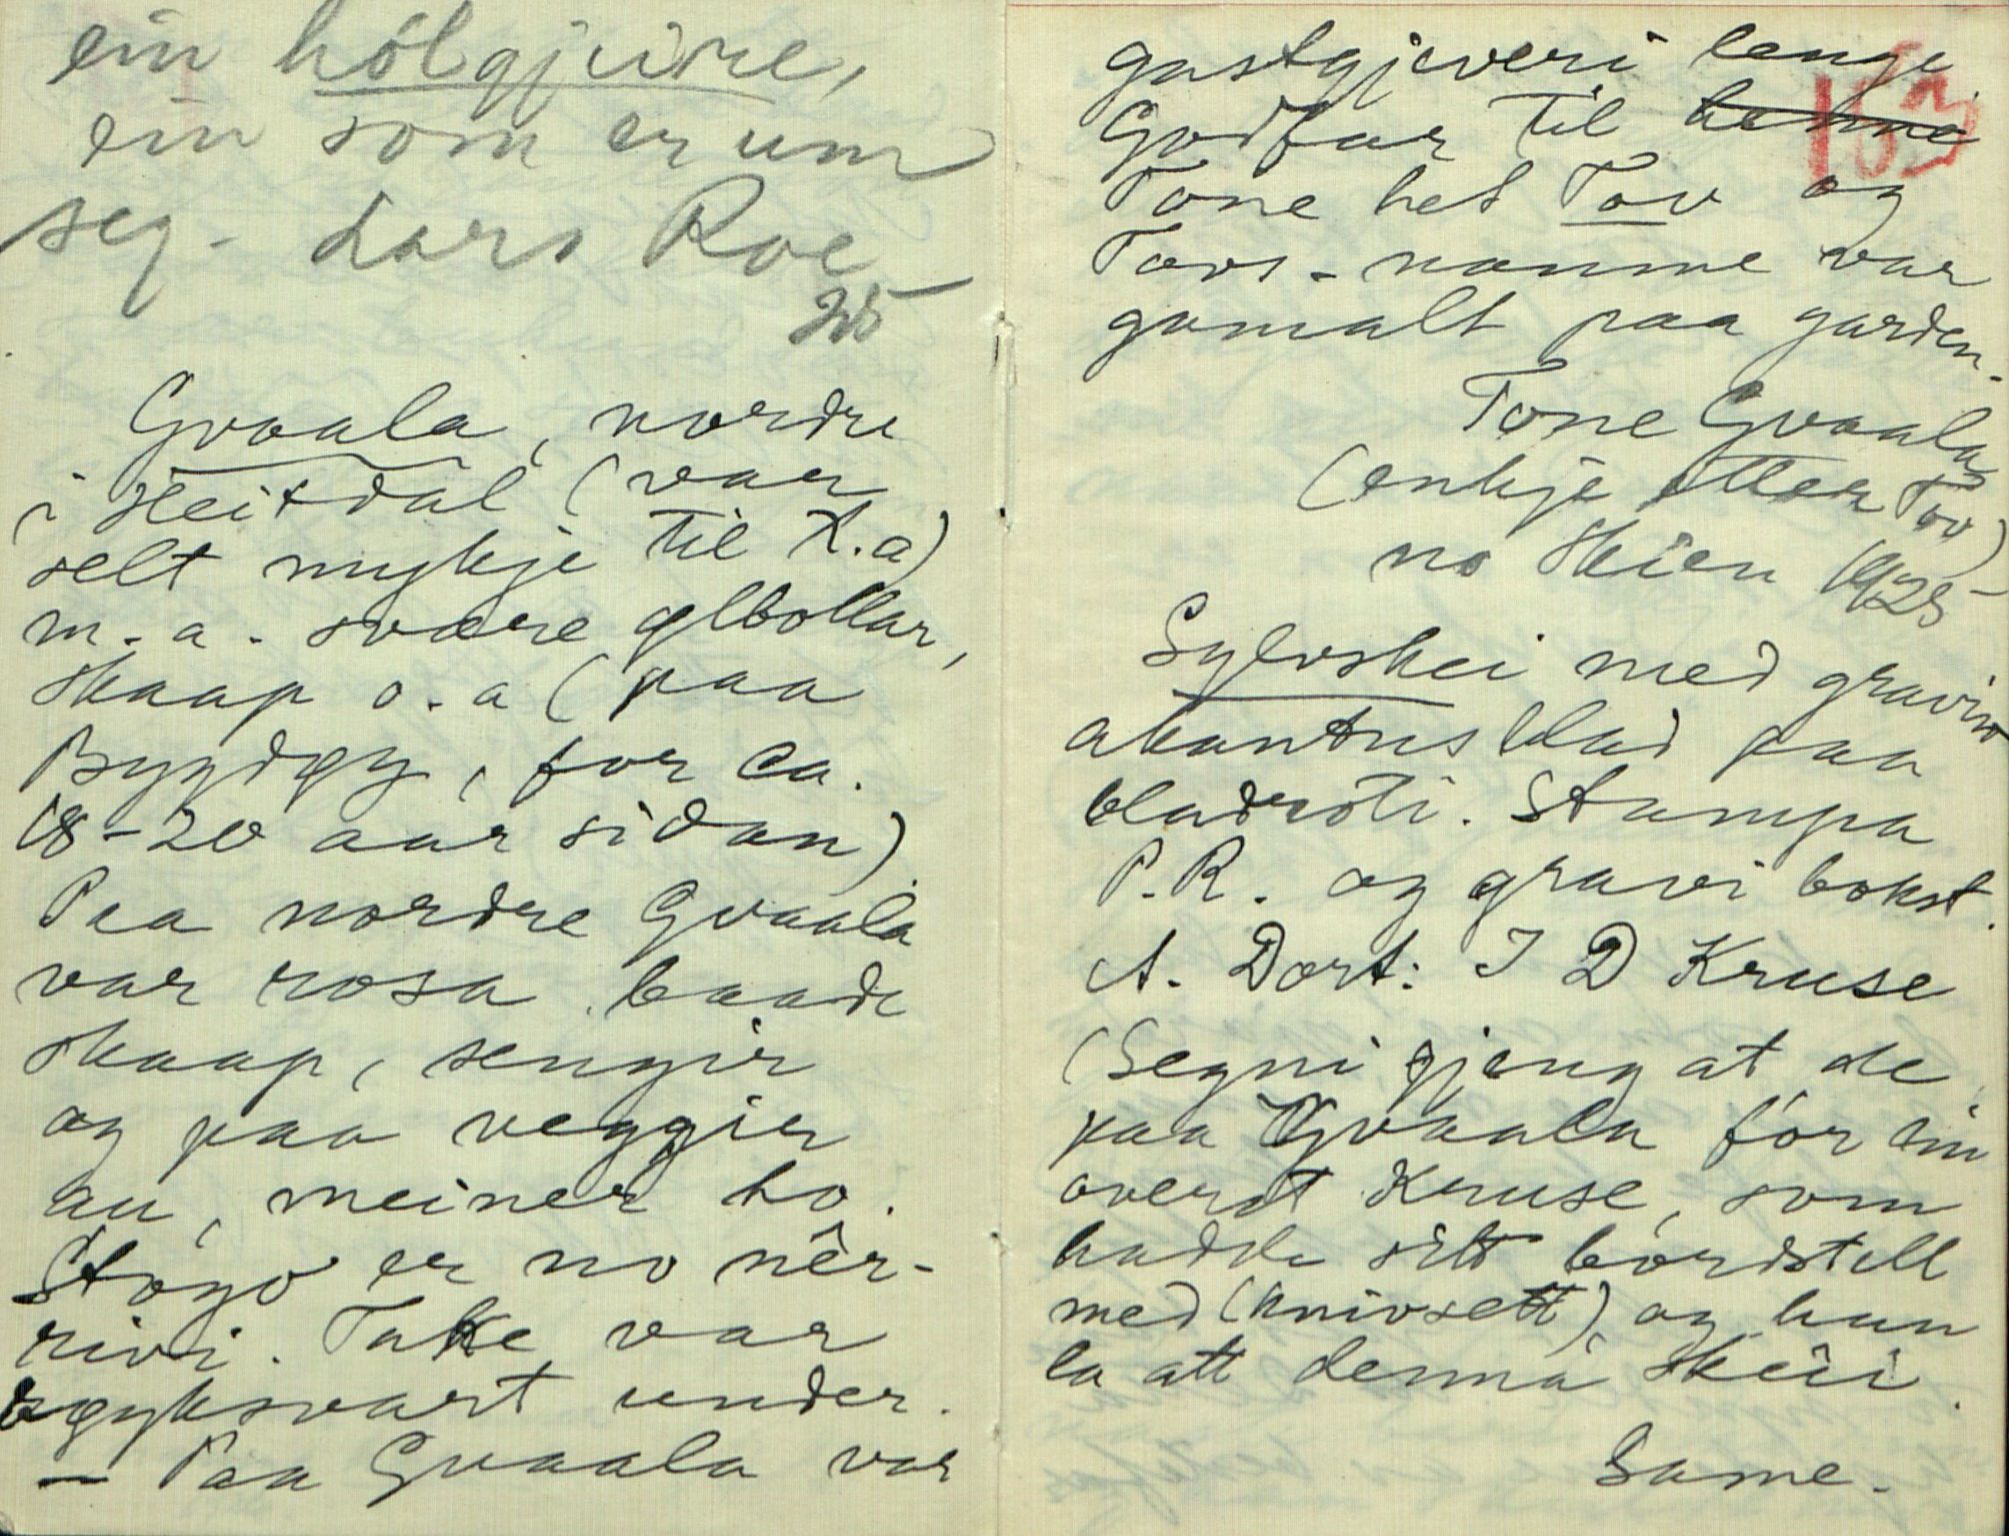 ein hólgjuire,
ein som er um
seg. Lars Roe
25
Gvaala, nordre
i Heitdal (var
selt mykje til K.a)
m. a. svære ølbollar,
skaap o. a (paa
Bygdøy, for ca.
18-20 aar sidan)
Paa nordre Gvaala
var rosa baade
skaap, sengir
og paa veggir
au, meiner ho.
Stogo er no nêr-
rivi. Take var
bgyksvart under.
– Paa Gvaala var
gastgjeveri lengi
163
Godfar til henne
Tone het Tov og
Tovs-namne var
gamalt paa garden.
Tone Gvaala
(enkje etter Tov)
no Skien 1925
Sylvskei med gravira
akantusblad paa
bladróti. Stampa
P.R. og gravi bokst.
A. Dort: I D Kruse
(Segni gjeng at de
paa Gvaala för ein
overst Kruse, som
hadde sitt bordstell
med (knivsett) og han
la att denna skeii.
Same.